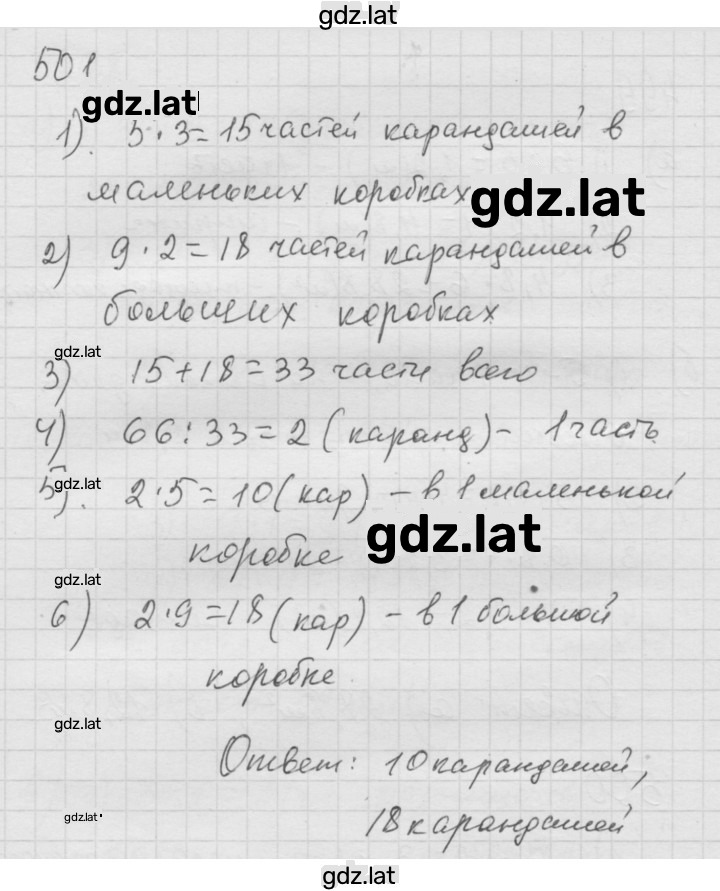 gdz.lat
501
gdz.lat
1). 5·3=15 частей карандашей в
маленьких коробках
gdz.lat
2) 9·2=18 частей карандашей в
больших коробках
gdz.lat
3) 15+18=33 части всего
4) 66:33=2 (каранд)- 1 часть
gdz.lat
5). 2·5=10(кар) - в 1 маленькой
коробке
gdz.lat
gdz.lat
6) 2·9=18(кар) - в 1 большой
коробке
gdz.lat
Ответ: 10 карандашей,
gdz.lat
18 карандашей
gdz.lat